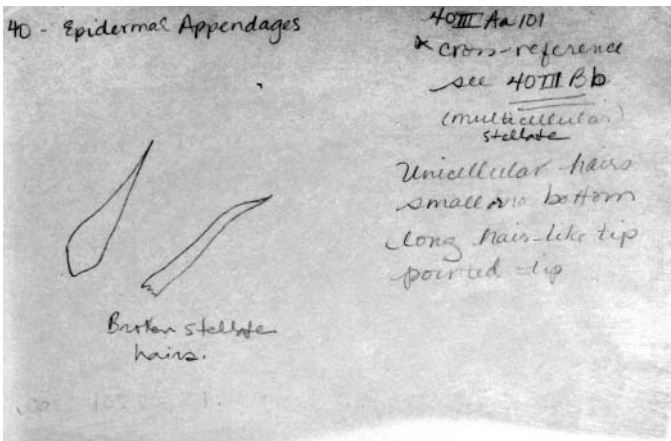 40 - Epidermal Appendages
40III Aa 101
* cross-reference
see 40III Bb
(multicellular)
stellate
Unicellular hairs
small bottom
long hair-like tip
pointed tip
Broken stellate
hairs.